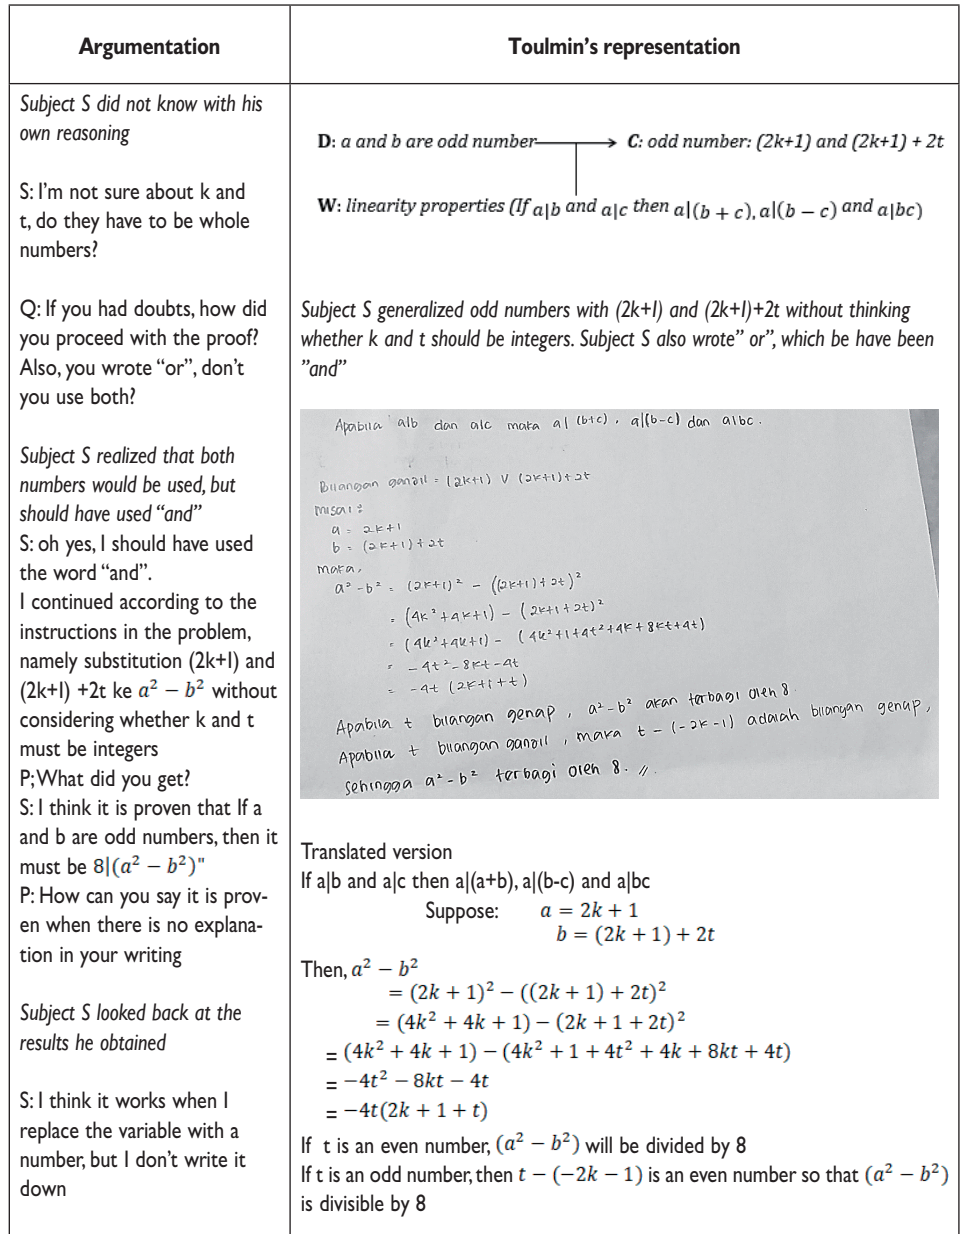 Argumentation
Toulmin’s representation
Subject S did not know with his
own reasoning
S: I’m not sure about k and
t, do they have to be whole
numbers?
Q: If you had doubts, how did
you proceed with the proof?
Also, you wrote “or”, don’t
you use both?
Subject S realized that both
numbers would be used, but
should have used “and”
S: oh yes, I should have used
the word “and”.
I continued according to the
instructions in the problem,
namely substitution (2k+I) and
(2k+I) +2t ke a² − b² without
considering whether k and t
must be integers
P; What did you get?
S: I think it is proven that If a
and b are odd numbers, then it
must be 8|(a² − b²)"
P: How can you say it is prov-
en when there is no explana-
tion in your writing
Subject S looked back at the
results he obtained
S: I think it works when I
replace the variable with a
number, but I don’t write it
down
D: a and b are odd number
C: odd number: (2k+1) and (2k+1) + 2t
W: linearity properties (If a|b and a|c then a|(b + c), a|(b − c) and a|bc)
Subject S generalized odd numbers with (2k+I) and (2k+I)+2t without thinking
whether k and t should be integers. Subject S also wrote” or”, which be have been
”and”
Apabila a|b dan a|c maka a| (b+c), a|(b-c) dan a|bc.
Bilangan ganjil = (2k+1) V (2k+1)+2t
misal :
a = 2k+1
b = (2k+1)+2t
maka,
a² - b² = (2k+1)² - ((2k+1)+2t)²
= (4k²+4k+1) - (2k+1+2t)²
= (4k²+4k+1) - (4k²+1+4t²+4k+8kt+4t)
= -4t²-8kt-4t
= -4t (2k+1+t)
Apabila t bilangan genap, a²-b² akan terbagi oleh 8.
Apabila t bilangan ganjil, maka t - (-2k-1) adalah bilangan genap,
sehingga a²-b² terbagi oleh 8. //.
Translated version
If a|b and a|c then a|(a+b), a|(b-c) and a|bc
Suppose: a = 2k + 1
b = (2k + 1) + 2t
Then, a² − b²
= (2k + 1)² − ((2k + 1) + 2t)²
= (4k² + 4k + 1) − (2k + 1 + 2t)²
= (4k² + 4k + 1) − (4k² + 1 + 4t² + 4k + 8kt + 4t)
= −4t² − 8kt − 4t
= −4t(2k + 1 + t)
If t is an even number, (a² − b²) will be divided by 8
If t is an odd number, then t − (−2k − 1) is an even number so that (a² − b²)
is divisible by 8